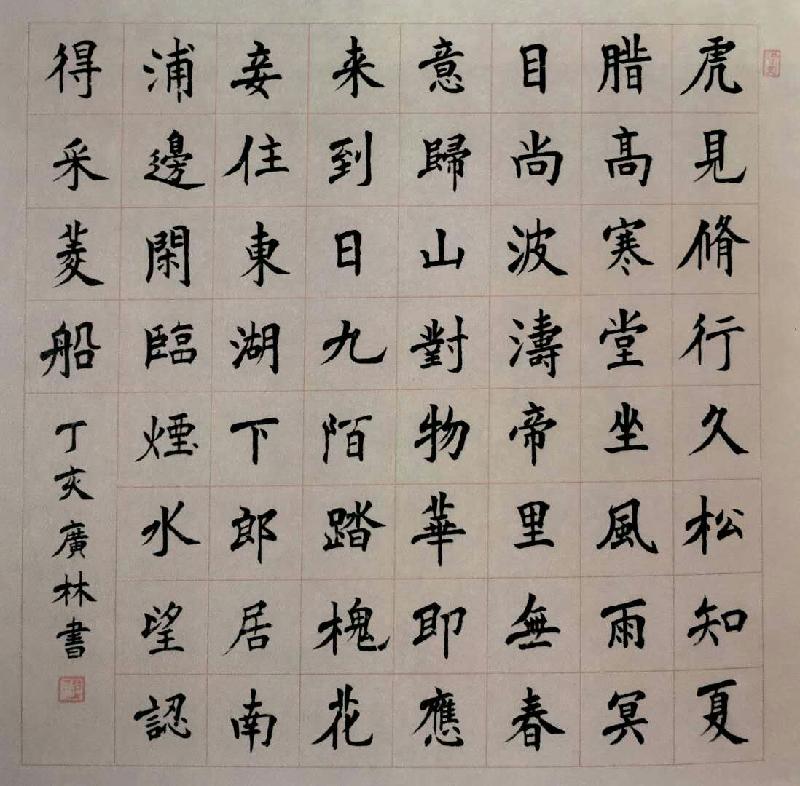 虎見脩行久松知夏
腊高寒堂坐風雨冥
目尚波濤帝里無春
意歸山對物華即應
来到日九陌踏槐花
妾住東湖下郎居南
浦邊閑臨煙水望認
得采菱船
丁亥廣林書